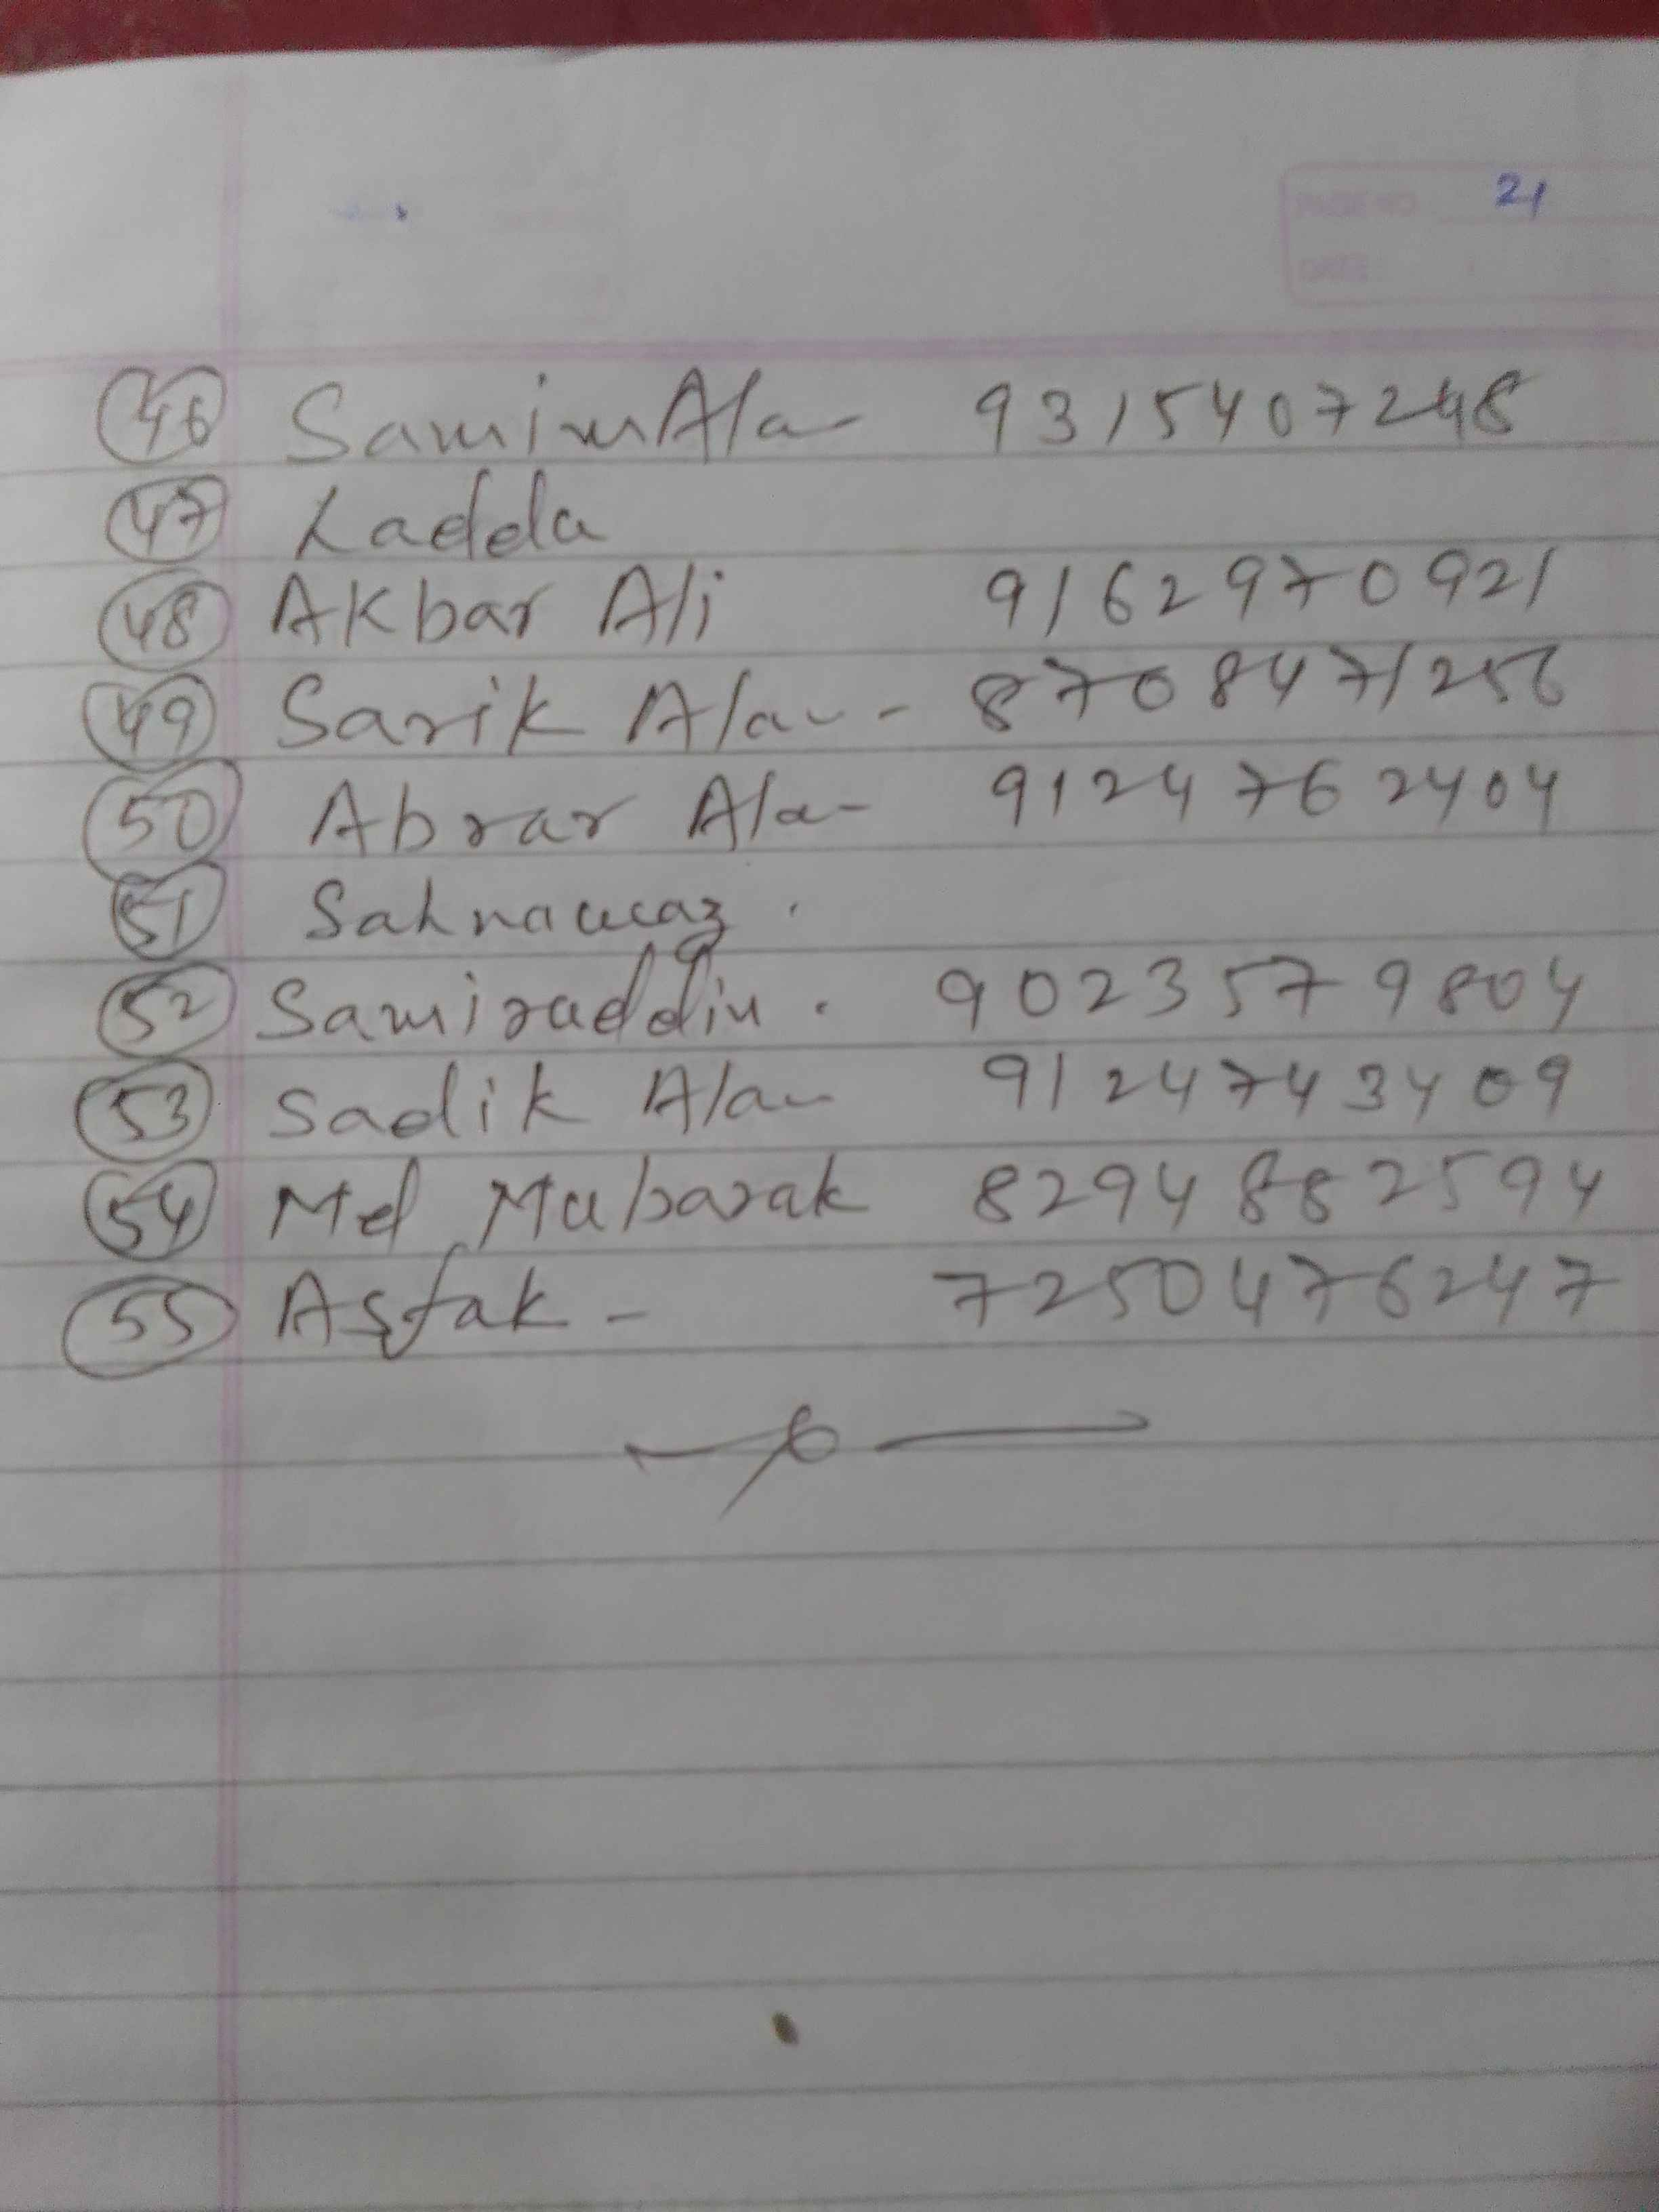 21
46 Samim Ala
9315407248
47 Ladda
48 Akbar Ali 9162970921
49 Sarik Ala - 8708471256
50 Abrar Ala 9124762404
51 Sahnawaz .
52 Samiruddin . 9023579804
53 Sadik Ala 9124743409
54 Md Mubarak 8294882594
55 Asfak - 7250476247